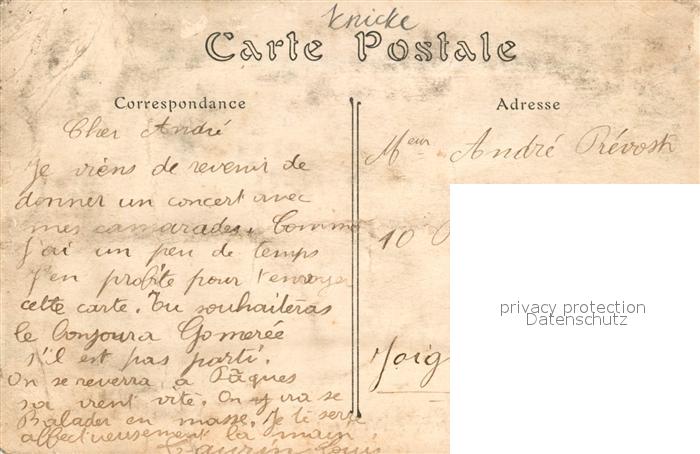 Knicke
Carte Postale
Correspondance
Cher André
Je viens de revenir de
donner un concert avec
mes camarades. Comme
J'ai un peu de temps
J'en profite pour t'envoyer
cette carte. Tu souhaiteras
le bonjour a Gomerée
s'il est pas parti.
On se reverra a Pâques
sa vient vite. On y ira se
Balader en masse. Je te serre
affectueusement la main.
Adresse
Meur André Prévost
10
Joig
privacy protection
Datenschutz